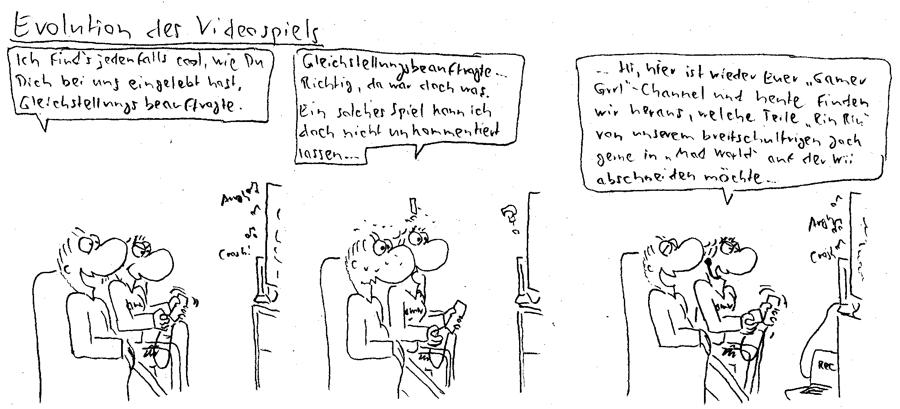 Evolution des Videospiels
Ich find's jedenfalls cool, wie Du
Dich bei uns eingelebt hast,
Gleichstellungsbeauftragte.
Argh!
Crash!
Gleichstellungsbeauftragte...
Richtig, da war doch was.
Ein solches Spiel kann ich
doch nicht unkommentiert
lassen...
... Hi, hier ist wieder Euer „Gamer
Girl"-Channel und heute finden
wir heraus, welche Teile „Rin Rin"
von unserem breitschultrigen Jack
gerne in „Mad World" auf der Wii
abschneiden möchte...
Argh!
Crash!
REC